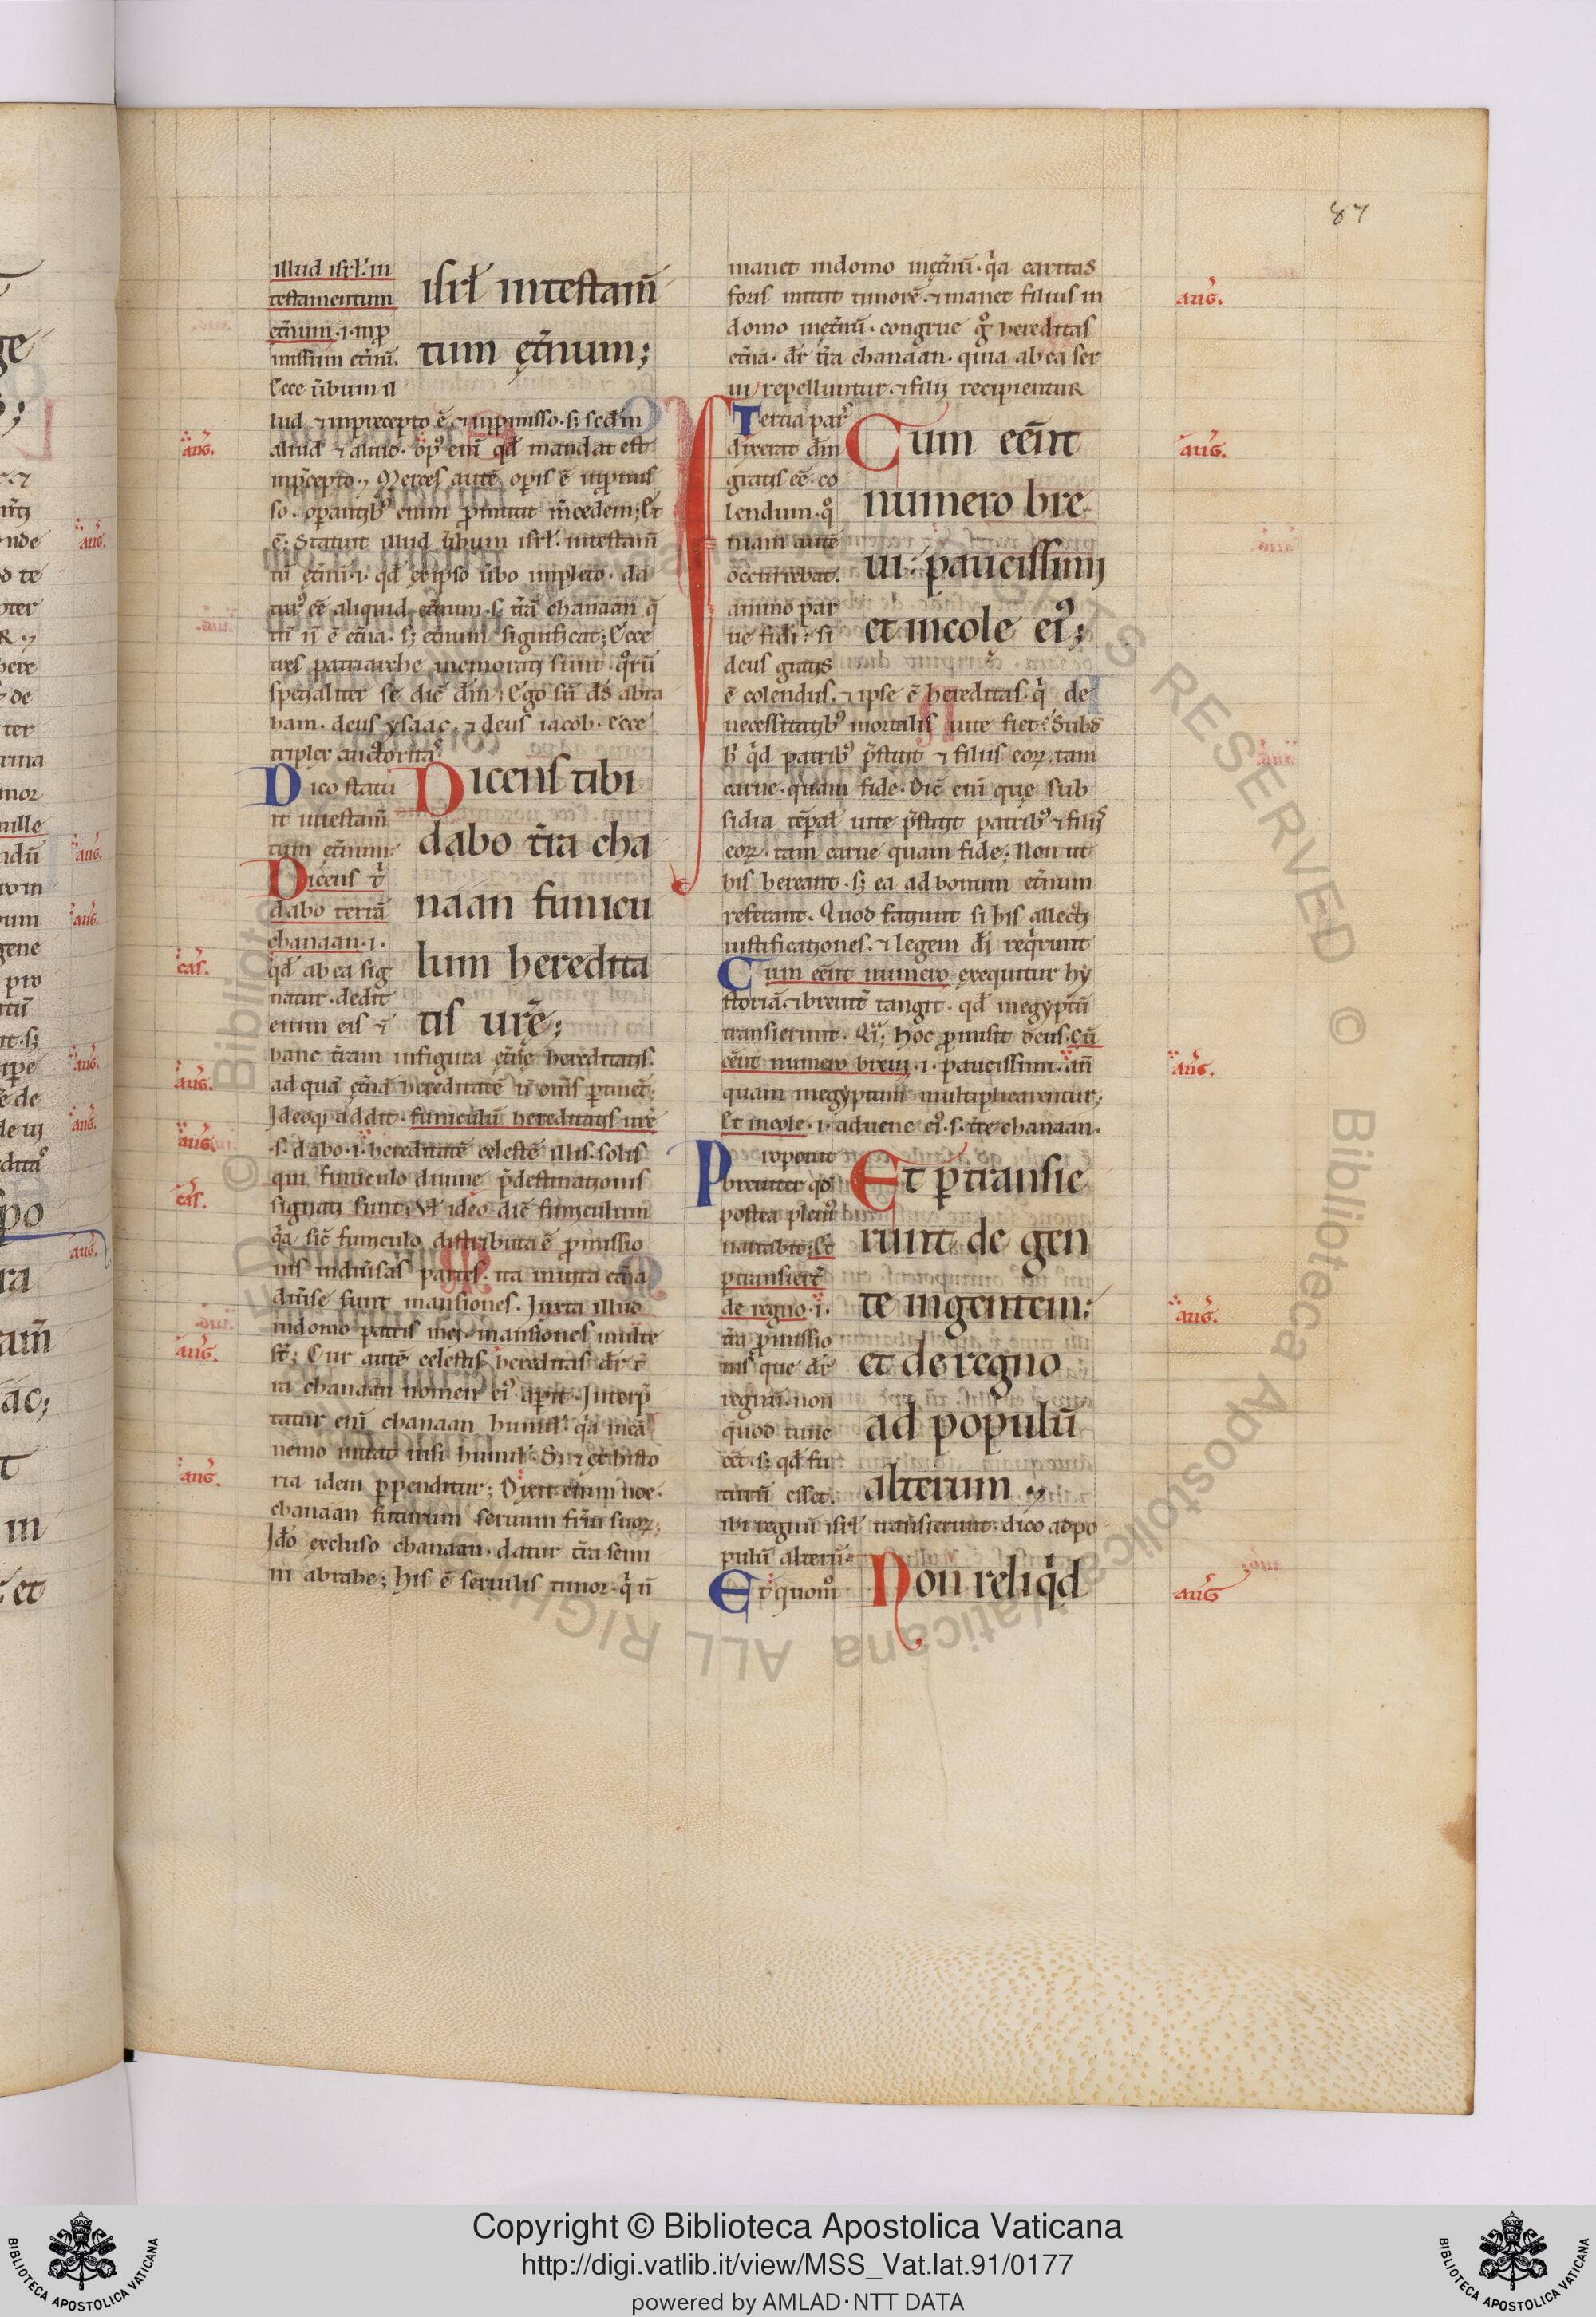 87
illud isrl̄. in
testamentum
et̄num .i. in ꝓ
missum et̄nū.
Ecce ūbum il
isrl̄ in testam̄
tum ęt̄num;
lud ⁊ in precepto ē ⁊ in ꝓmisso. sꝫ scd̄m
aliud ⁊ aliud. opꝰ eni qd̄ mandat est
in p̄cepto. Merces autē operis ē in ꝓmis
so. operantibꝰ enim ꝓmittit m̄cedem; Et
ē; Statuit illud ūbum isrl̄. in testam̄
tū et̄nū .i. qd̄ ex ipso ūbo impleto. da
turꝰ eē aliquid et̄num. s. t̄rā chanaan q̄
tn̄ n̄ ē et̄na. sꝫ et̄num significat; Ecce
tres patriarche memorati sunt quorū
specialiter se dic̄ dm̄; Ego sū ds̄ abra
ham. deus ysaac. ⁊ deus iacob. Ecce
triplex auctoritas
Dico statu
it in testam̄
tum ęt̄num.
Dicens t̄
dabo terrā
chanaan .i.
qd̄ ab ea sig
natur. dedit
enim eis ⁊
Dicens tibi
dabo t̄ra cha
naan funicu
lum heredita
tis ur̄ę;
hanc t̄ram in figura et̄nę hereditatis.
ad quā et̄nā hereditatē n̄ om̄s ꝑtinet;
Ideoqꝫ addit. funiculū hereditatis ur̄ę
.s. dabo .i. hereditatē celestē illis. solis
qui funiculo diuine p̄destinationis
signati sunt; Vł ideo dic̄ funiculum
q̄a sic̄ funiculo distributa ē ꝓmissio
nis in diūsas partes. ita in uita et̄na
diūse sunt mansiones. Iuxta illud
in domo patris mei. mansiones multe
st̄; Cur autē celestis hereditas dr̄ t̄
ra chanaan nomen eiꝰ aperit. Interp̄
tatur eni chanaan humilis. q̄a in eā
nemo intrat nisi humilis. Sꝫ ⁊ ex histo
ria idem ꝑpenditur; Dixit enim noe.
chanaan futurum seruum fr̄m suoꝝ;
Ido excluso chanaan. datur t̄ra semi
ni abrahe; his ē seruilis timor. q̄ n̄
manet in domo in et̄nū. q̄a caritas
foris mittit timorē. ⁊ manet filius in
domo in et̄nū. congrue gͦ hereditas
et̄na. dr̄ t̄ra chanaan. quia ab ea ser
ui repelluntur. ⁊ filii recipientur
Tertia pars
dixerat dm̄
gratis eē co
lendum. qͦ
niam autē
occurrebat.
animo par
ue fidi; si
deus gratis
Cum eēnt
numero bre
ui: paucissimi
et incole eiꝰ;
ē colendus. ⁊ ipse ē hereditas. q̄ de
necessitatibꝰ mortalis uite fiet? Subd
it qd̄ patribꝰ p̄stitit ⁊ filiis eoꝝ. tam
carne. quam fide. Dic̄ eni que sub
sidia tēpał uite p̄stitit patribꝰ ⁊ filiis
eoꝝ. tam carne quam fide; Non ut
his hereant. sꝫ ea ad bonum et̄num
referant. Quod faciunt si his allecti
iustificationes. ⁊ legem di reqirunt
Cum eēnt numero. exequitur hy
storiā. ⁊ breuit̄ tangit. qd̄ in egyptū
transierunt. Qi; hoc ꝓmisit deus. Cū
eēnt numero breui .i. paucissimi. an̄
quam in egyptum multiplicarentur;
Et incole .i. aduene eiꝰ .s. t̄re chanaan.
Proponit
breuiter qd̄
postea pleniꝰ
narrabit; Et
ꝑtransier̄t
de regno .i.
t̄ra ꝓmissio
nis que dr̄
regnū. non
quod tunc
eēt. sꝫ qd̄ fu
turū esset.
Et ꝑtransie
runt de gen
te in gentem:
et de regno
ad populū
alterum
ibi regnū isrl̄ transierunt. dico ad po
pulū alterū.
Et quomͦ
Non reliqd
aug̾.
cas.
aug̾.
aug̾.
cas.
aug̾.
aug̾.
aug̾.
aug̾.
aug̾.
aug̾.
aug̾
© Biblioteca Apostolica Vaticana ALL RIGHTS RESERVED
Copyright © Biblioteca Apostolica Vaticana
http://digi.vatlib.it/view/MSS_Vat.lat.91/0177
powered by AMLAD·NTT DATA
BIBLIOTECA APOSTOLICA VATICANA
BIBLIOTECA APOSTOLICA VATICANA